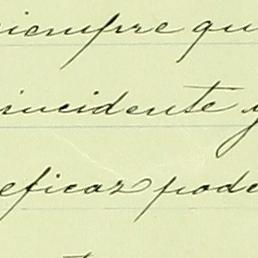 siempre qu
incidente y
eficaz pode